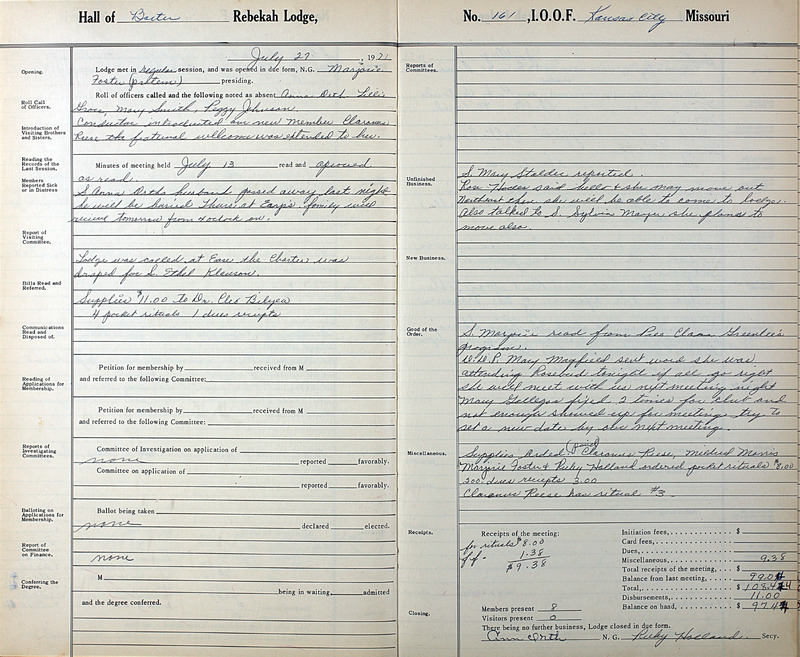 Hall of Baxter Rebekah Lodge,
July 27 1971
Opening.
Lodge met in regular session, and was opened in due form, N.G. Marjorie
Foster (protem) presiding.
Roll Call of Officers.
Roll of officers called and the following noted as absent Anna Orth. Lillie
Gross, Mary Smith, Peggy Johnson.
Introduction of Visiting Brothers and Sisters.
Conductor introducted our new member Claranus
Reese the fraternal wellcome was extended to her.
Reading the Records of the Last Session.
Minutes of meeting held July 13 read and aproved
as read.
Members Reported Sick or in Distress
S Anna Orths husband passed away last night
he will be buried Thurs at Earp's. family will
recieve tomorrow from 4 oclock on.
Report of Visiting Committee.
Lodge was called at Ease the Charter was
draped for S. Ethel Klewson.
Bills Read and Referred.
Supplies $11.00 to Dr. Cleo Bilyea
4 pocket rituals 1 dues receipts
Communications Read and Disposed of.
Petition for membership by received from M
and referred to the following Committee:
Reading of Applications for Membership.
Petition for membership by received from M
and referred to the following Committee:
Reports of Investigating Committees.
Committee of Investigation on application of
none reported favorably.
Committee on application of
reported favorably.
Balloting on Applications for Membership.
Ballot being taken
none declared elected.
Report of Committee on Finance.
none
Conferring the Degree.
M
being in waiting, admitted
and the degree conferred.
No. 161, I.O.O.F. Kansas City Missouri
Reports of Committees.
Unfinished Business.
S. Mary Stalder reported.
Rose Hodes said hello & she may move out
Northwest then she will be able to come to Lodge.
Also talked to S. Sylvia Mayer she plans to
move also.
New Business.
Good of the Order.
S. Marjorie read from Pres Clara Greenlee's
program.
D.D.P. May Magfield sent word she was
attending Rosebud tonight if all go right
she will meet with us next meeting night
Mary Gellegos fixed 2 tonics for club and
not enough showed up for meeting. try to
set a new date by our next meeting.
Miscellaneous.
Supplies orded (paid) Claranus Reese, Mildred Morris
Marjorie Foster & Ricky Holland ordered pocket rituals $8.00
200 dues receipts 3.00
Claranus Reese has ritual #3.
Receipts.
Receipts of the meeting:
for rituals $8.00
1.38
$9.38
Initiation fees, $
Card fees,
Dues,
Miscellaneous, 9.38
Total receipts of the meeting, $
Balance from last meeting,
Total, $
Disbursements, 11.00
Balance on hand, $
Members present 8
Visitors present 0
Closing.
There being no further business, Lodge closed in due form.
Ann Orth N. G. Ricky Holland Secy.